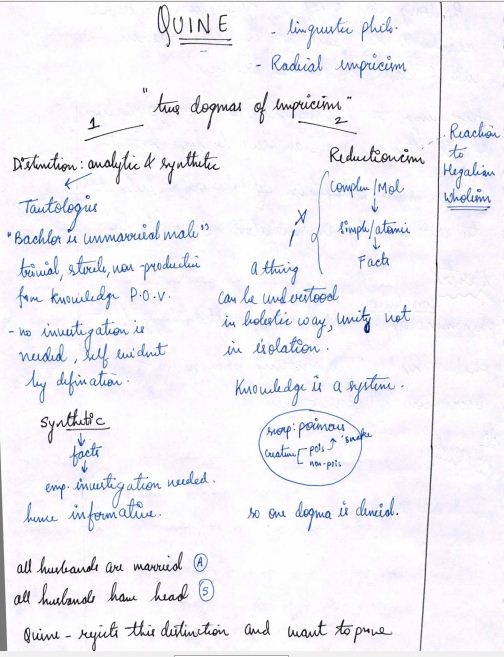 QUINE
- linguistic philo.
- Radical impricism
"two dogmas of impricism"
1
2
Distinction: analytic & synthetic
Tautologies
"Bachlor is unmarried male"
trivial, sterile, non-productive
from knowledge P.O.V.
- no investigation is
needed, self evident
by defination.
Synthetic
facts
emp. investigation needed.
hence informative.
Reductionism
Complex/Mol
Simple/atomic
Facts
a thing
can be understood
in holestic way, unity not
in isolation.
Knowledge is a system.
scorp: poisnous
creature
pois
snake
non-pois
so one dogma is denied.
Reaction
to
Hegalian
Wholism
all husbands are married (A)
all husbands have head (S)
Quine - rejects this distinction and want to prove